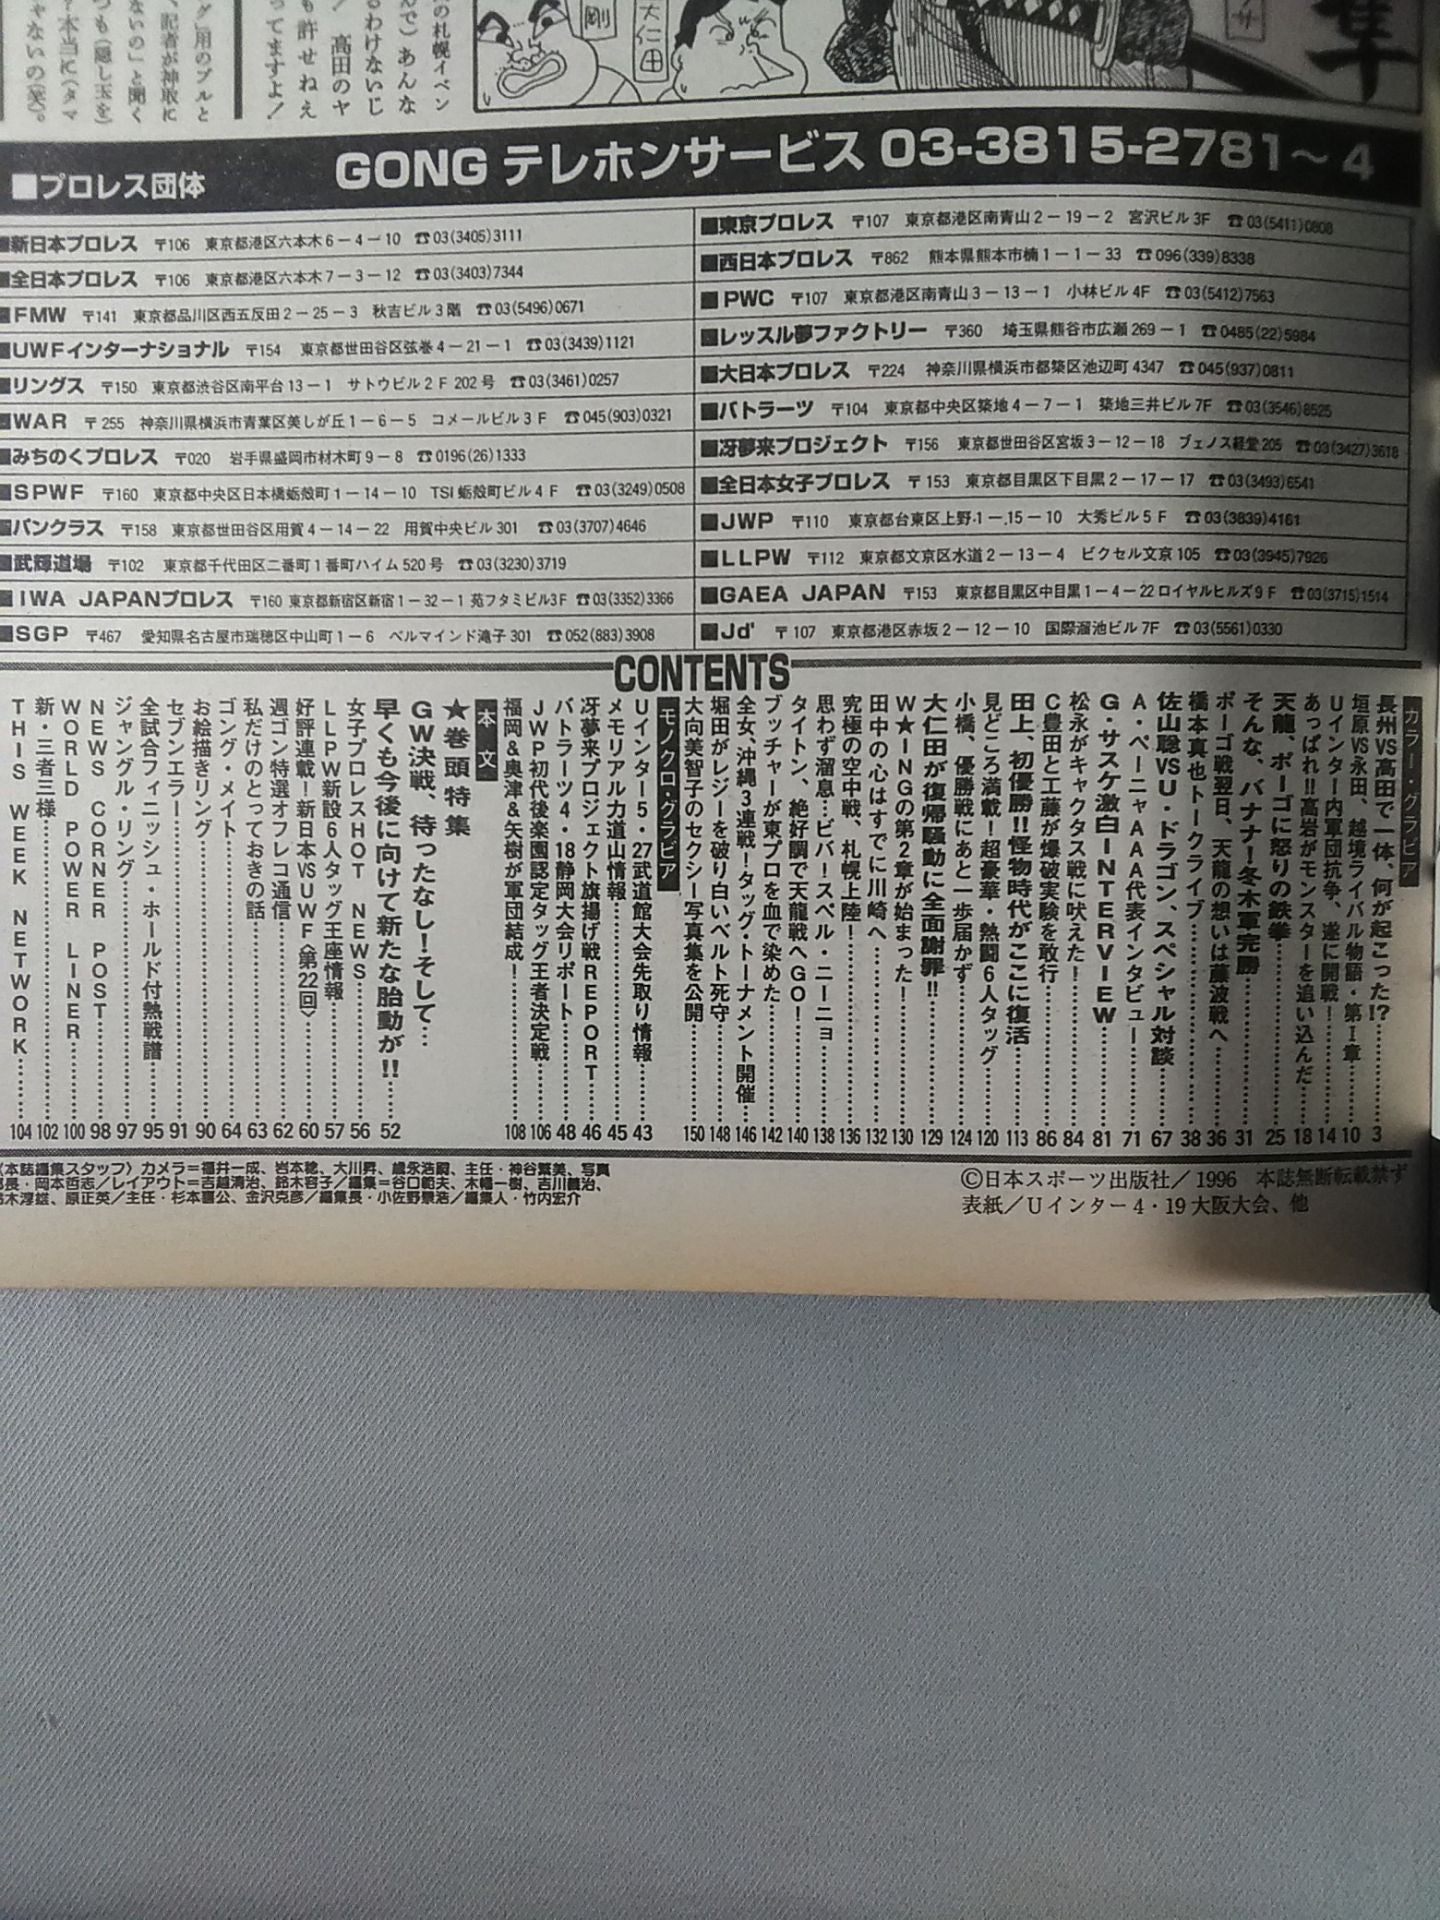 グ」用のブルと
、記者が神取に
ないの」と聞く
つも(隠し玉を)
?本当に(タマ
ゃないの(笑)。
の札幌イベン
んで)あんな
るわけないじ
/ 高田のヤ
も許せねえ
ってますよ!
剛
大仁田
サ
隼
GONG テレホンサービス 03-3815-2781〜4
■プロレス団体
■新日本プロレス 〒106 東京都港区六本木6-4-10 ☎03(3405)3111
■全日本プロレス 〒106 東京都港区六本木7-3-12 ☎03(3403)7344
■FMW 〒141 東京都品川区西五反田2-25-3 秋吉ビル3階 ☎03(5496)0671
■UWFインターナショナル 〒154 東京都世田谷区弦巻4-21-1 ☎03(3439)1121
■リングス 〒150 東京都渋谷区南平台13-1 サトウビル2F 202号 ☎03(3461)0257
■WAR 〒255 神奈川県横浜市青葉区美しが丘1-6-5 コメールビル3F ☎045(903)0321
■みちのくプロレス 〒020 岩手県盛岡市材木町9-8 ☎0196(26)1333
■SPWF 〒160 東京都中央区日本橋蛎殻町1-14-10 TSI蛎殻町ビル4F ☎03(3249)0508
■パンクラス 〒158 東京都世田谷区用賀4-14-22 用賀中央ビル301 ☎03(3707)4646
■武輝道場 〒102 東京都千代田区二番町1番町ハイム520号 ☎03(3230)3719
■IWA JAPANプロレス 〒160 東京都新宿区新宿1-32-1 苑フタミビル3F ☎03(3352)3366
■SGP 〒467 愛知県名古屋市瑞穂区中山町1-6 ベルマインド滝子301 ☎052(883)3908
■東京プロレス 〒107 東京都港区南青山2-19-2 宮沢ビル3F ☎03(5411)0808
■西日本プロレス 〒862 熊本県熊本市楠1-1-33 ☎096(339)8338
■PWC 〒107 東京都港区南青山3-13-1 小林ビル4F ☎03(5412)7563
■レッスル夢ファクトリー 〒360 埼玉県熊谷市広瀬269-1 ☎0485(22)5984
■大日本プロレス 〒224 神奈川県横浜市都築区池辺町4347 ☎045(937)0811
■バトラーツ 〒104 東京都中央区築地4-7-1 築地三井ビル7F ☎03(3546)8525
■冴夢来プロジェクト 〒156 東京都世田谷区宮坂3-12-18 ブェノス経堂205 ☎03(3427)3618
■全日本女子プロレス 〒153 東京都目黒区下目黒2-17-17 ☎03(3493)6541
■JWP 〒110 東京都台東区上野1-15-10 大秀ビル5F ☎03(3839)4161
■LLPW 〒112 東京都文京区水道2-13-4 ビクセル文京105 ☎03(3945)7926
■GAEA JAPAN 〒153 東京都目黒区中目黒1-4-22ロイヤルヒルズ9F ☎03(3715)1514
■Jd' 〒107 東京都港区赤坂2-12-10 国際溜池ビル7F ☎03(5561)0330
CONTENTS
カラー・グラビア
長州VS高田で一体、何が起こった!?…3
垣原VS永田、越境ライバル物語・第Ⅰ章…10
Uインター内軍団抗争、遂に開戦!…14
あっぱれ!!高岩がモンスターを追い込んだ…18
天龍、ポーゴに怒りの鉄拳…25
そんな、バナナ!冬木軍完勝…31
ポーゴ戦翌日、天龍の想いは藤波戦へ…36
橋本真也トークライブ…38
佐山聡VSU・ドラゴン、スペシャル対談…67
A・ペーニャAAA代表インタビュー…71
G・サスケ激白INTERVIEW…81
松永がキャクタス戦に吠えた!…84
C豊田と工藤が爆破実験を敢行…86
田上、初優勝!!怪物時代がここに復活…113
見どころ満載!超豪華・熱闘6人タッグ…120
小橋、優勝戦にあと一歩届かず…124
大仁田が復帰騒動に全面謝罪!!…129
W★INGの第2章が始まった!…130
田中の心はすでに川崎へ…132
究極の空中戦、札幌上陸!…136
思わず溜息…ビバ!スペル・ニーニョ…138
タイトン、絶好調で天龍戦へGO!…140
ブッチャーが東プロを血で染めた…142
全女、沖縄3連戦!タッグ・トーナメント開催…146
堀田がレジーを破り白いベルト死守…148
大向美智子のセクシー写真集を公開…150
モノクロ・グラビア
Uインター5・27武道館大会先取り情報…43
メモリアル力道山情報…45
冴夢来プロジェクト旗揚げ戦REPORT…46
バトラーツ4・18静岡大会リポート…48
JWP初代後楽園認定タッグ王者決定戦…106
福岡&奥津&矢樹が軍団結成!…108
本文
★巻頭特集
GW決戦、待ったなし!そして…
早くも今後に向けて新たな胎動が!!…52
女子プロレスHOT NEWS…56
LLPW新設6人タッグ王座情報…57
好評連載!新日本VSUWF〈第22回〉…60
週ゴン特選オフレコ通信…62
私だけのとっておきの話…63
ゴング・メイト…64
お絵描きリング…90
セブンエラー…91
全試合フィニッシュ・ホールド付熱戦譜…95
ジャングル・リング…97
NEWS CORNER POST…98
WORLD POWER LINER…100
新・三者三様…102
THIS WEEK NETWORK…104
〈本誌編集スタッフ〉カメラ=福井一成、岩本稔、大川昇、歳永浩嗣、主任・神谷繁美、写真
部長・岡本哲志/レイアウト=吉越清治、鈴木容子/編集=谷口範夫、木幡一樹、吉川義治、
鈴木淳雄、原正英/主任・杉本喜公、金沢克彦/編集長・小佐野景浩/編集人・竹内宏介
©日本スポーツ出版社/1996 本誌無断転載禁ず
表紙/Uインター4・19大阪大会、他